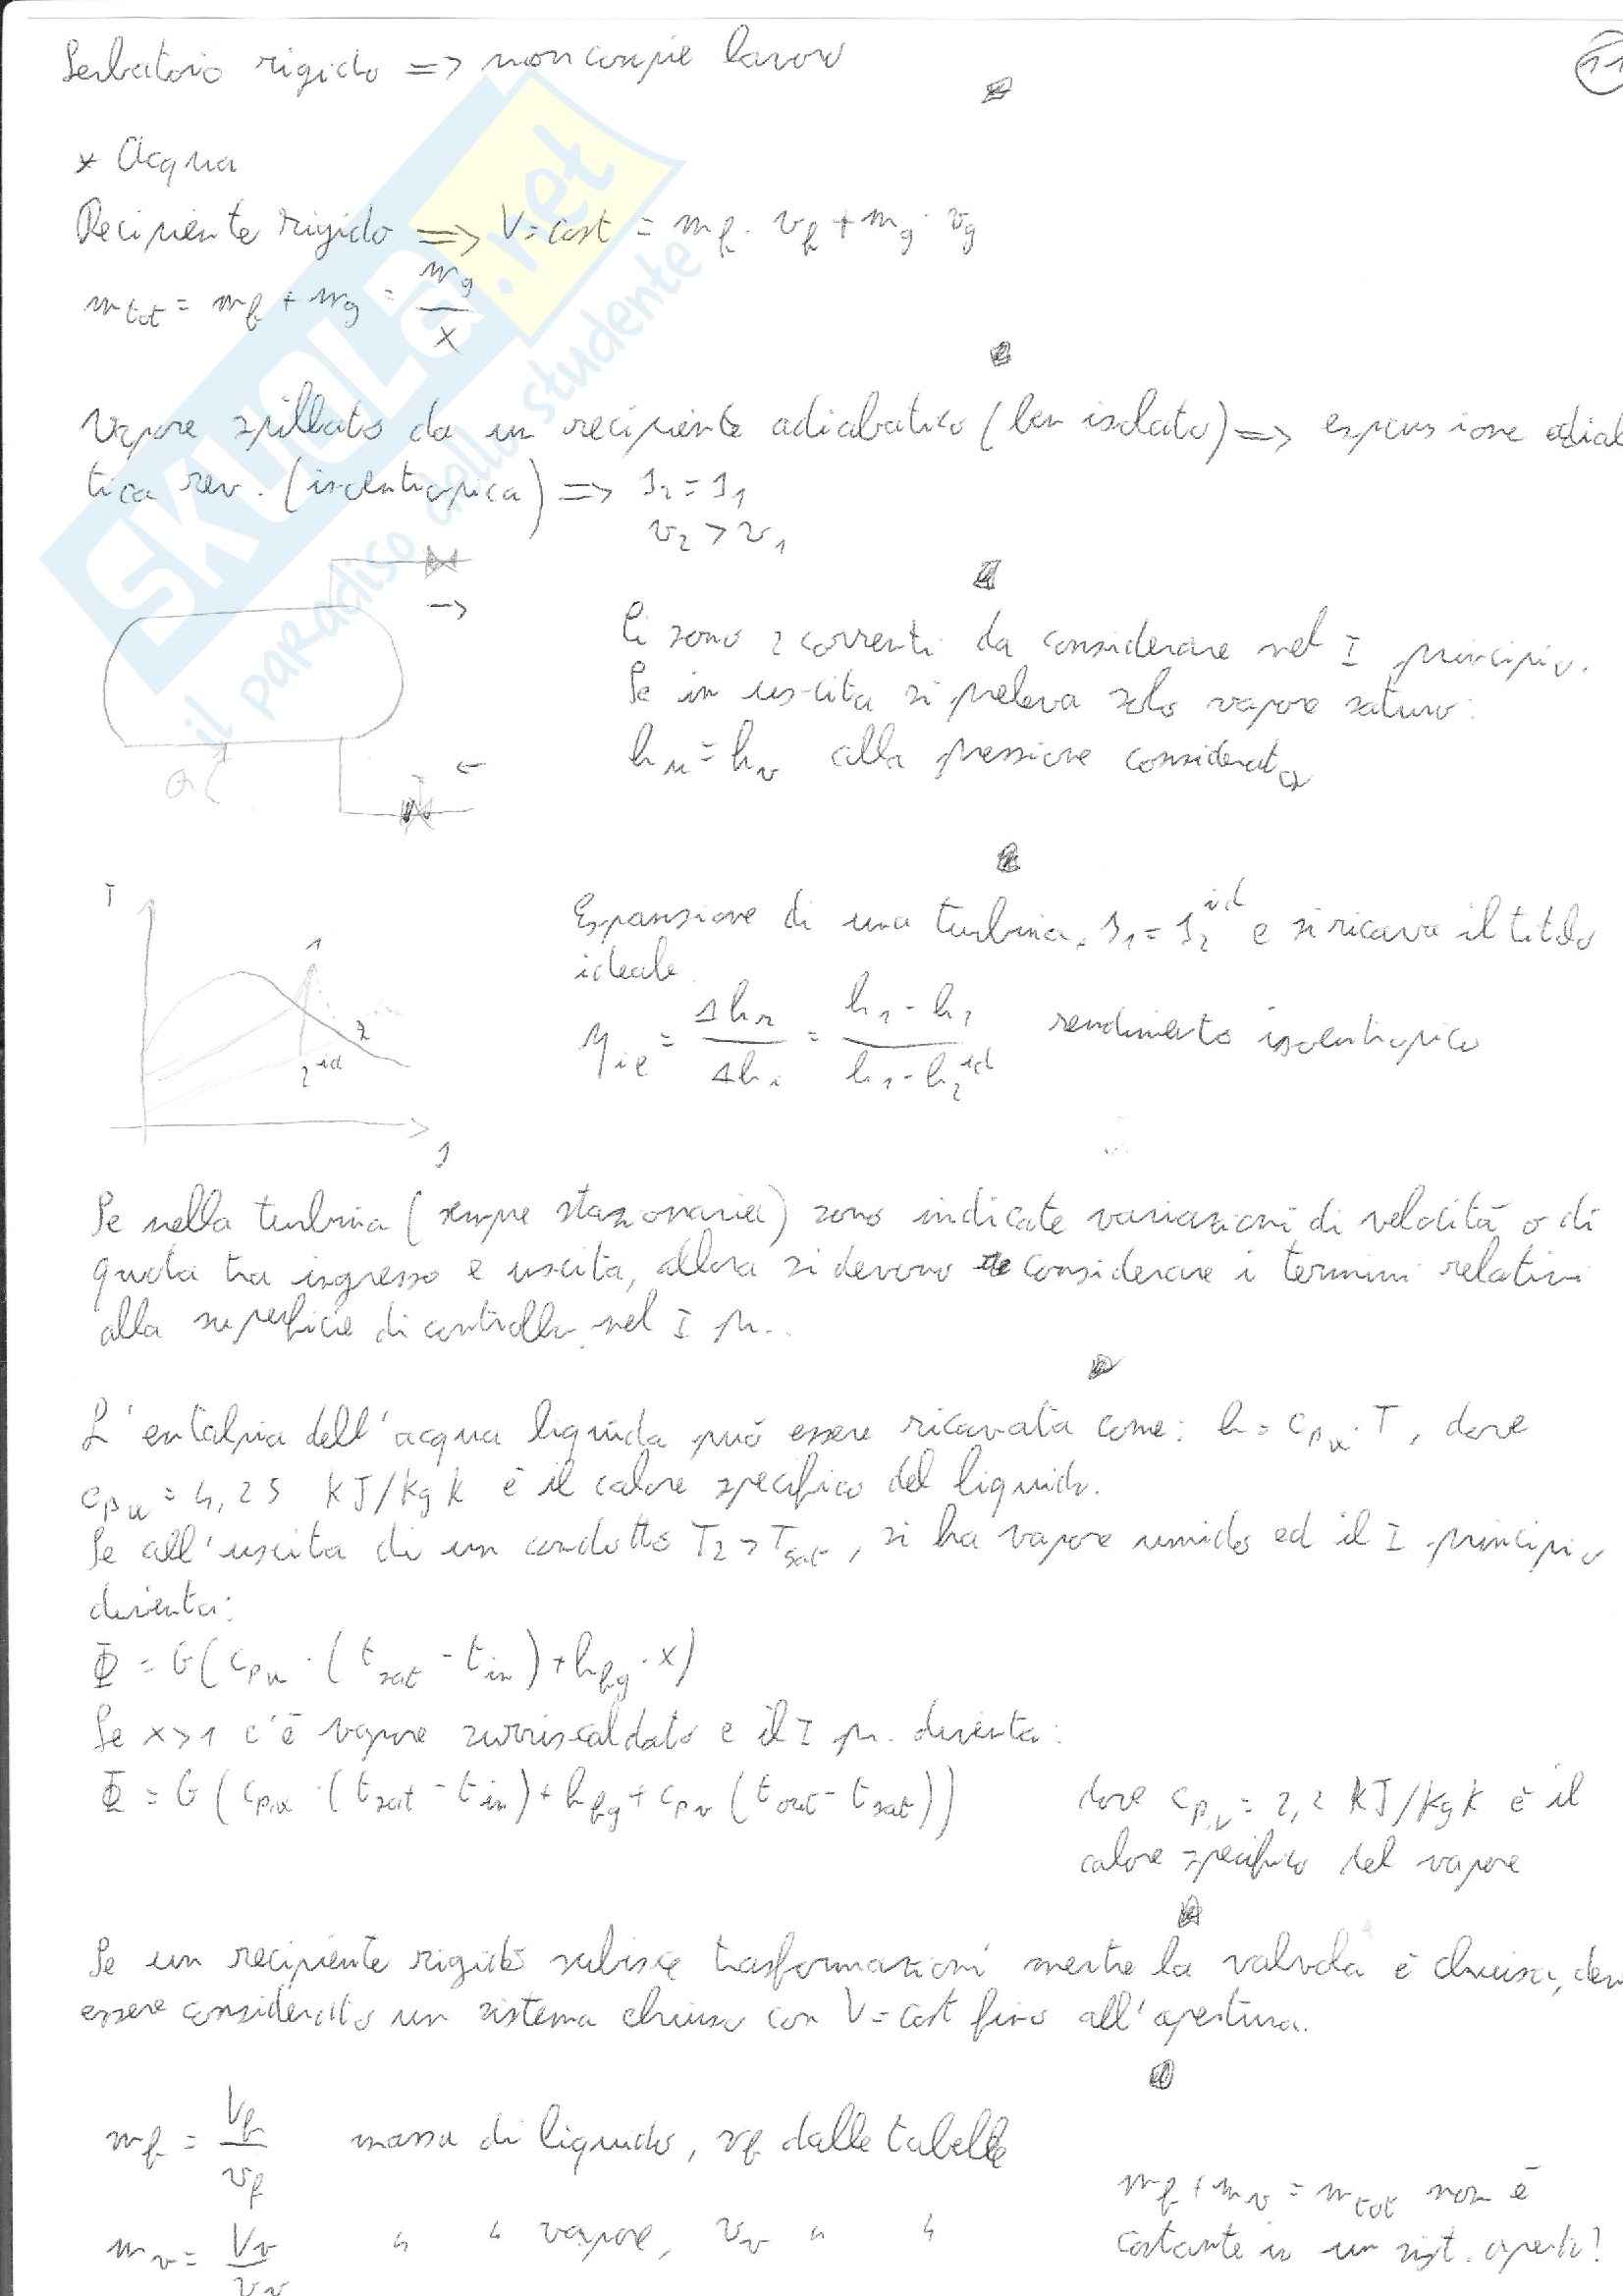 Serbatoio rigido => non compie lavoro
11
* Acqua
Recipiente rigido => V=cost = mf · vf + mg · vg
mtot = mf + mg = mg / x
Vapore spillato da un recipiente adiabatico (ben isolato) => espansione adiaba
tica rev. (isoentropica) => s2 = s1
v2 > v1
Ci sono 2 correnti da considerare nel I principio.
Se in uscita si preleva solo vapore saturo:
hu = hv alla pressione considerata
Q
T
1
2
2id
s
Espansione di una turbina, s1 = s2id e si ricava il titolo
ideale
ηie = Δhr / Δhi = h1 - h2 / h1 - h2id rendimento isoentropico
Se nella turbina (sempre stazionaria) sono indicate variazioni di velocità o di
quota tra ingresso e uscita, allora si devono considerare i termini relativi
alla superficie di controllo nel I pr..
L'entalpia dell'acqua liquida può essere ricavata come: h = cpα · T, dove
cpα = 4,25 kJ/kg k è il calore specifico del liquido.
Se all'uscita di un condotto T2 > Tsat, si ha vapore umido ed il I principio
diventa:
Φ = G(cpα · (tsat - tin) + hfg · x)
Se x>1 c'è vapore surriscaldato e il I pr. diventa:
Φ = G(cpα · (tsat - tin) + hfg + cpv (tout - tsat))
dove cpv = 2,2 kJ/kg k è il
calore specifico del vapore
Se un recipiente rigido subisce trasformazioni mentre la valvola è chiusa, dev
essere considerato un sistema chiuso con V=cost fino all'apertura.
mf = Vf / vf massa di liquido, vf dalle tabelle
mv = Vv / vv " " vapore, vv " "
mf + mv = mtot non è
costante in un sist. aperto!
SKUOLA.net
il paradiso dello studente